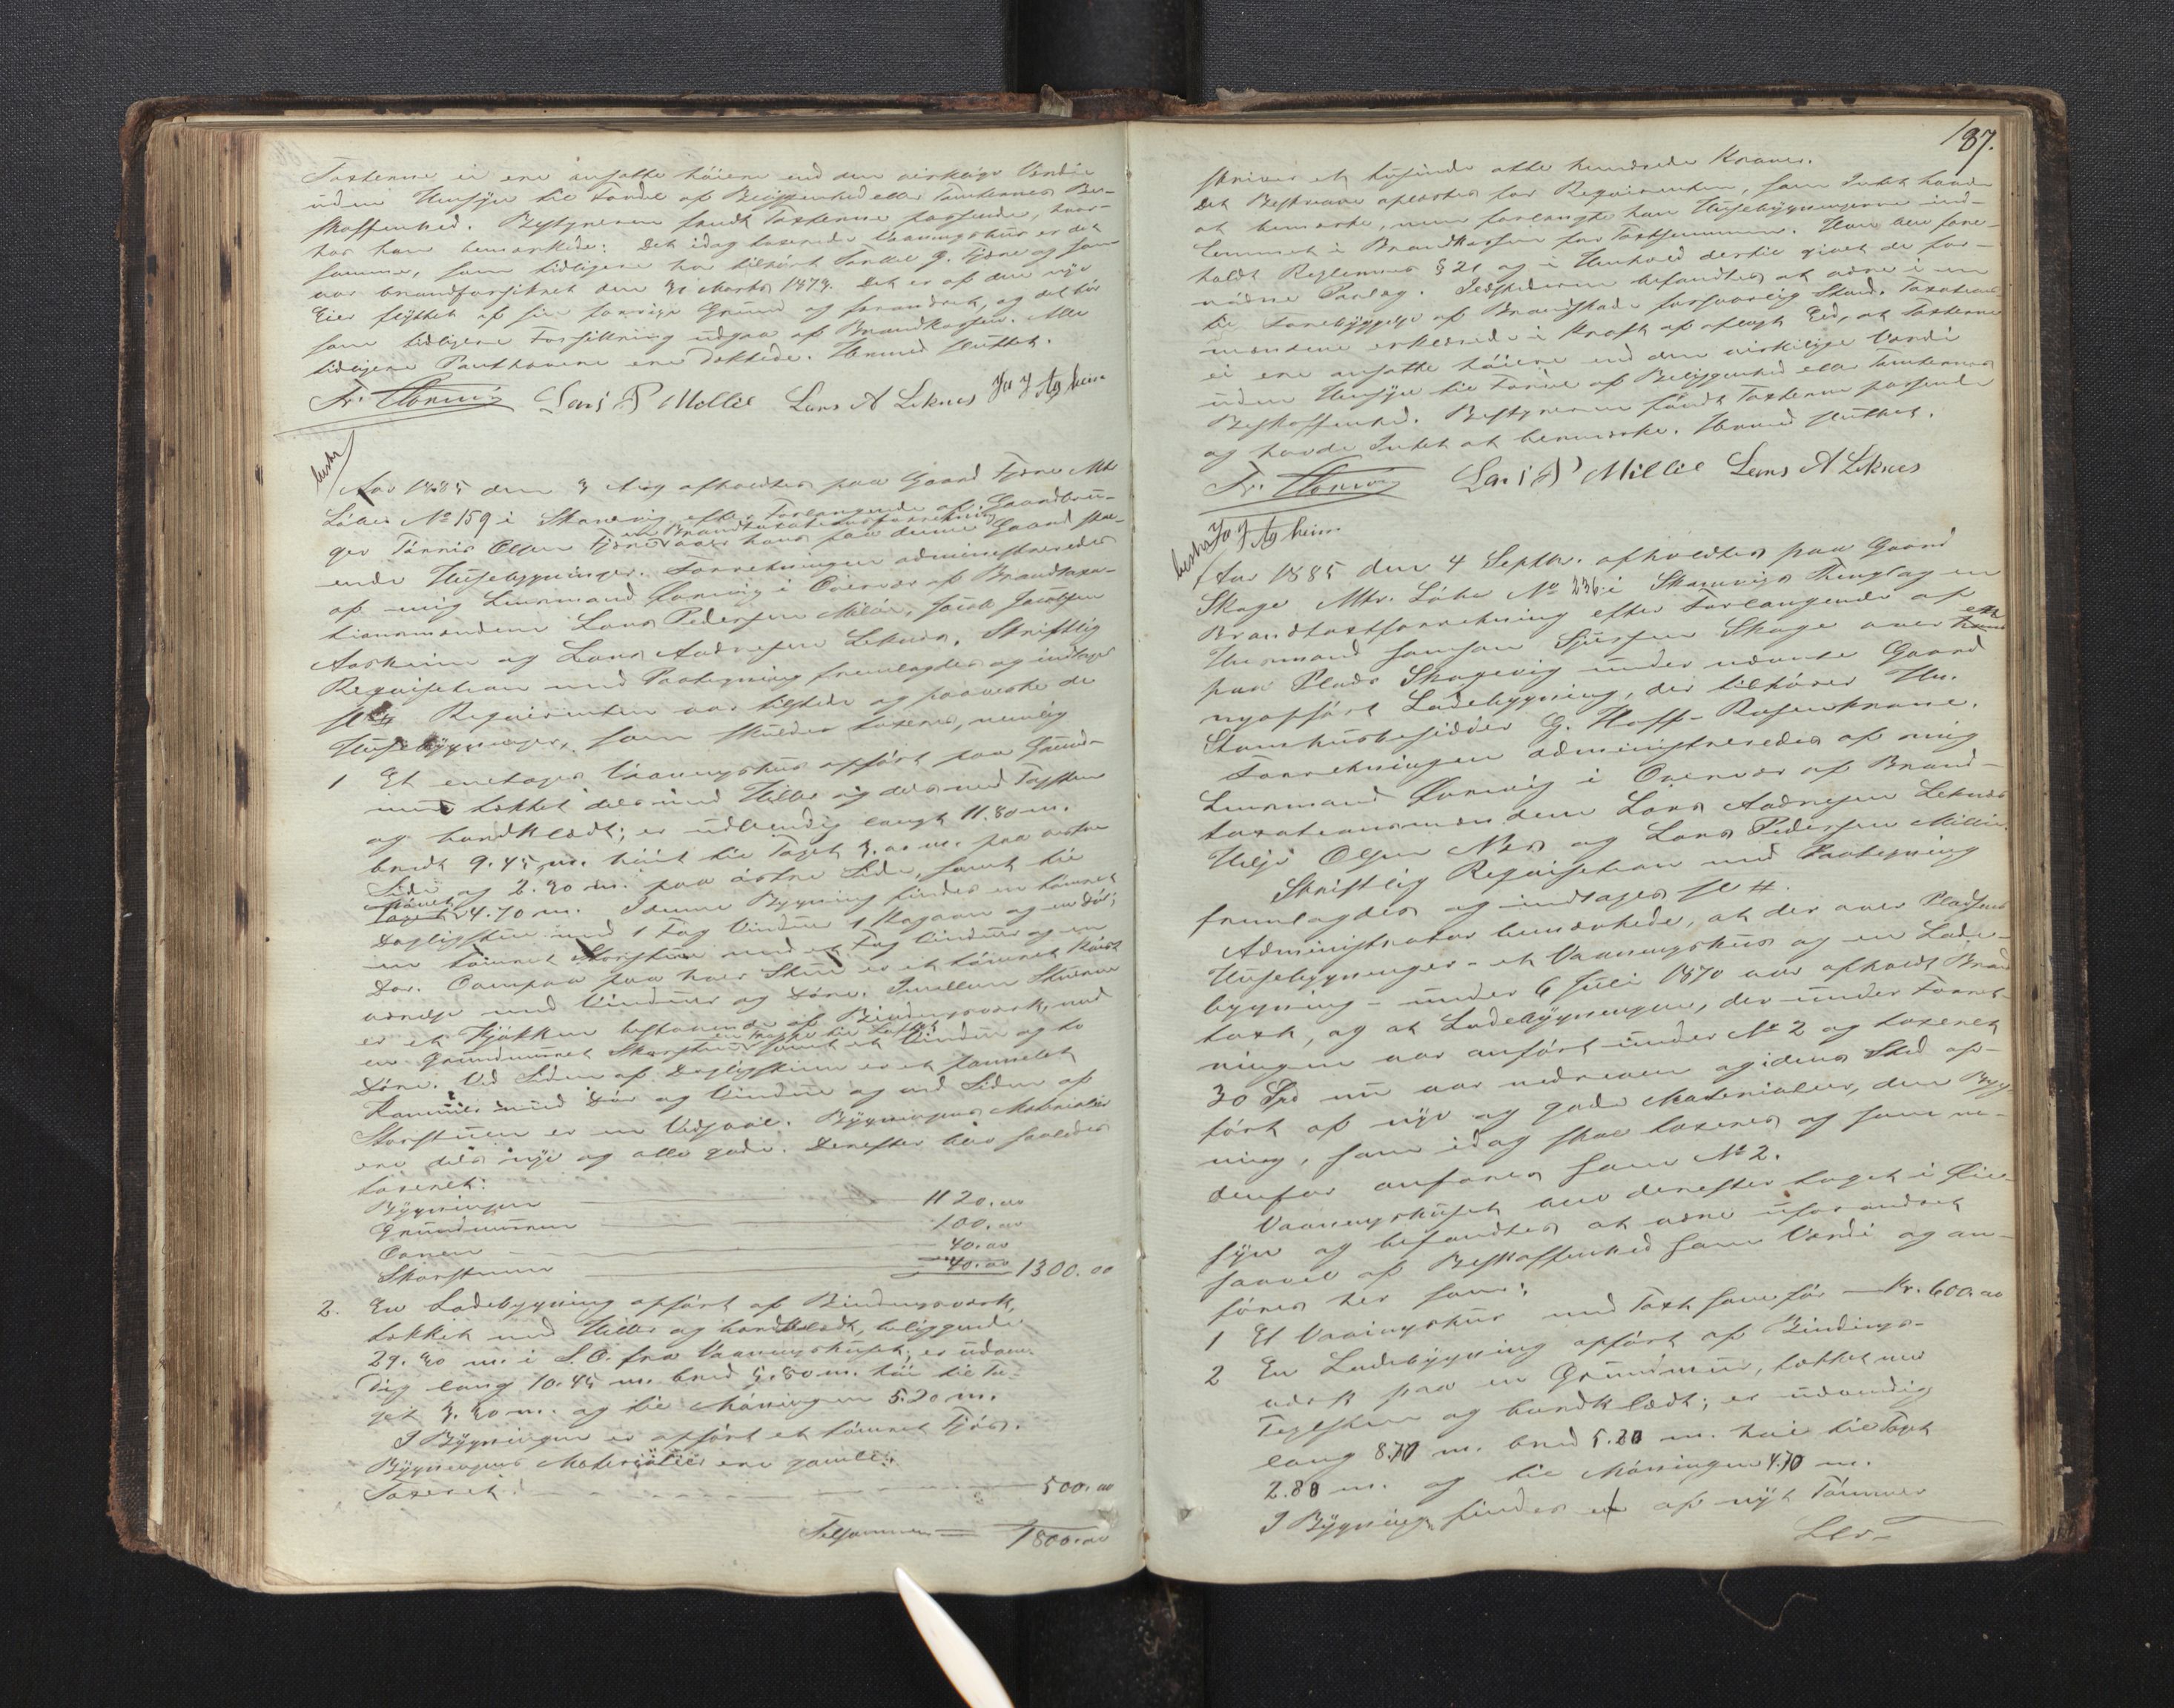 Taxterne ei ere ansatte høiere end den virkelige Værdie
uden Hensyn til Fordel af Beliggenhed eller Tomternes Be-
skaffenhed. Bestyreren fandt Taxterne passende, hvor-
hos han bemærkede: Det idag taxerede Vaaningshus er det
samme, som tidligere har tilhørt Torkel J. Fjære og som
var brandforsikret den 31 Marts 1873. Det er af den nye
Eier flyttet af sin forrige Grund og forandret, og det bør
som tidligere Forsikring udgaa af Brandkassen. Alle
tidligere Panthavere ere døde. Hermed sluttet.
Fr. Lars P Mellie Lars A Leknes
Aar 1885 den 3 Aug afholdtes paa Gaard Fjære Mtr
Løbe No 159 i Skanevig efter Forlangende af Gaardbru-
en Brandtaxationsforretning
ger Tørris Olsen Fjære over hans paa denne Gaard staa-
ende Husebygninger. Forretningen administreredes
af mig Lensmand i Overvær af Brandtaxa-
tionsmændene Lars Pedersen Milie, Jacob Jacobsen
Aasheim og Lars Andresen Leknes. Skriftlig
Requisition med Paategning fremlagdes og indtages
Requirenten var tilstede og paaviste de
Husebygninger, som skulde taxeres, nemlig
1 Et enetages Vaaningshus opført paa Grund-
mur tækket dels med Heller og dels med Tagsten
og bordklædt; er udvendig langt 11.80 m.
bredt 9.45 m. høit til Taget 3.00 m. paa vestre
Side og 2.20 m. paa østre Side, samt til
Mønet
Taget 4.70 m. I denne Bygning findes en tømret
Dagligstue med 1 Fag Vindue 1 Kagovn og en Dør;
en tømret Storstue med et Fag Vinduer og en
Dør. Ovenpaa paa hver Stue er et tømret Kvist-
værelse med Vinduer og Døre. Imellem Stuerne
er et Kjøkken bestaaende af Bindingsværk, med
en Trappe til Loftet
en grundmuret Skorsten samt et Vindue og to
Døre. Ved Siden af Dagligstuen er et pannelet
Kammer med Dør og Vindue og ved Siden af
Storstuen er en Udsval. Bygningens Materialier
ere dels nye og alle gode. Derefter blev saaledes
taxeret:
Bygningen 1120.00
Grundmuren 100.00
Ovnen 40.00
Skorstenen 40.00 1300.00
2. En Ladebygning opført af Bindingsværk,
tækket med Heller og bordklædt, beliggende
29.20 m. i S.O. fra Vaaningshuset; er udven-
dig lang 10.45 m. bred 5.80 m. høi til Ta-
get 3.20 m. og til Møningen 5.20 m.
I Bygningen er opført et tømret Fjøs.
Bygningens Materialier ere gamle.
Taxeret: 500.00
Tilsammen 1800.00
187.
skriver et tusinde otte hundrede Kroner.
Det Beskrevne oplæstes for Requirenten, som Intet havde
at bemærke, men forlangte han Husebygningerne ind-
lemmet i Brandkassen for Taxtsummen. Han blev fore-
holdt Reglernes § 21 og i Henhold dertil givet de for-
nødne Paalæg. Ildstederne befandtes at være i en
til Forebyggelse af Brandskade forsvarlig Stand. Taxations-
mændene erklærede i Kraft af aflagt Eed, at Taxterne
ei ere ansatte høiere end den virkelige Værdi
uden Hensyn til Fordel af Beliggenhed eller Tomternes
Beskaffenhed. Bestyreren fandt Taxterne passende
og havde Intet at bemærke. Hermed sluttet.
Fr. Lars P Mellie Lars A Leknes
Aar 1885 den 4 Septbr. afholdtes paa Gaard
Skage Mtr. Løbe No 236 i Skanevigs Thinglag en
Brandtaxtforretning efter Forlangende af
en
Husmand Samson Sjursen Skage over hans
paa Plads Skagevig under nævnte Gaard
nyopført Ladebygning, der tilhører Hr.
Stamhusbesidder G. Hoff-Rosenkrone.
Forretningen administreredes af mig
Lensmand i Overvær af Brand-
taxationsmændene Lars Andresen Leknes
Helje Olsen Næs og Lars Pedersen Millie.
Skriftlig Requisition med Paategning
fremlagdes og indtages
Administrator bemærkede, at der over Pladsens
Husebygninger - et Vaaningshus og en Lade-
bygning - under 6 Juli 1870 var afholdt Brand-
taxt, og at Ladebygningen, der under Forret-
ningen var anført under No 2 og taxeret
30 Spd nu var nedreven og idens Sted op-
ført af nye og gode Materialier, den Byg-
ning, som idag skal taxeres og som
derfor anføres som No 2.
Vaaningshuset blev derefter taget i Øie-
syn og befandtes at være uforandret
saavel af Beskaffenhed som Værdi og an-
føres her som:
1 Et Vaaningshus med Taxt som før Kr. 600.00
2 En Ladebygning opført af Bindings-
værk paa en Grundmur, tækket med
Teglsten og bordklædt; er udvendig
lang 8.70 m. bred 5.20 m. høi til Taget
2.80 m. og til Møningen 4.70 m.
I Bygning findes et af nyt Tømmer